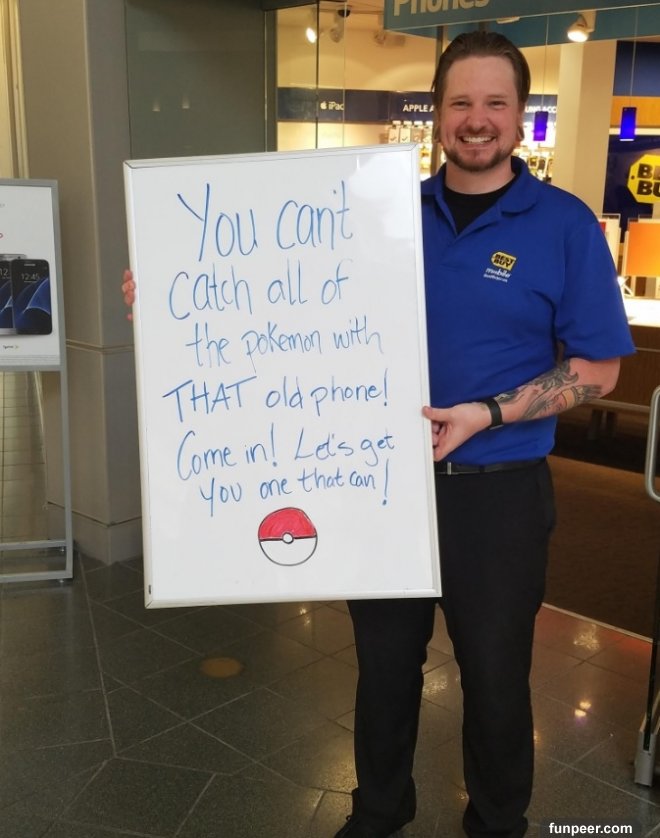 Phones
iPad
APPLE
BEST
BUY
12:45
You can't
catch all of
the pokemon with
THAT old phone!
Come in! Let's get
you one that can!
BEST
BUY
mobile
funpeer.com